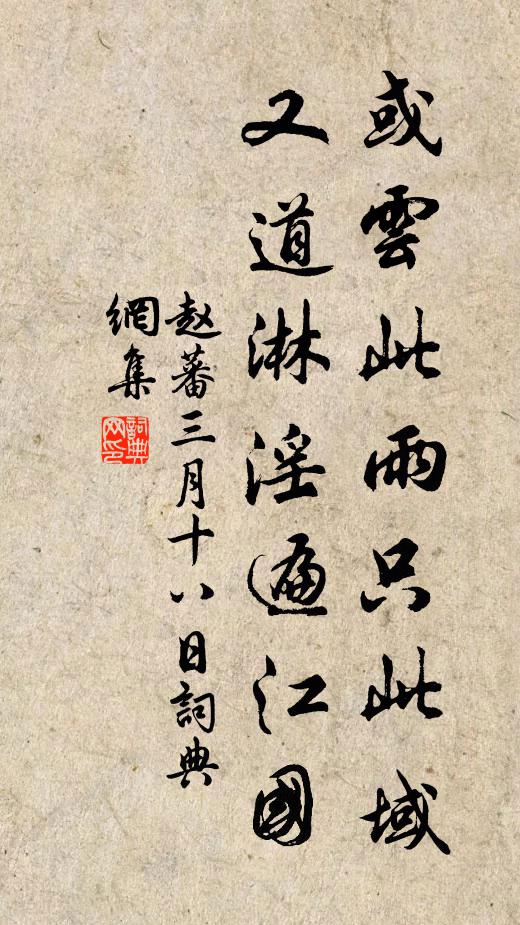 或雲此雨只此域
又道淋淫遍江國
赵蕃三月十八日詞典
網集
詞典
网印